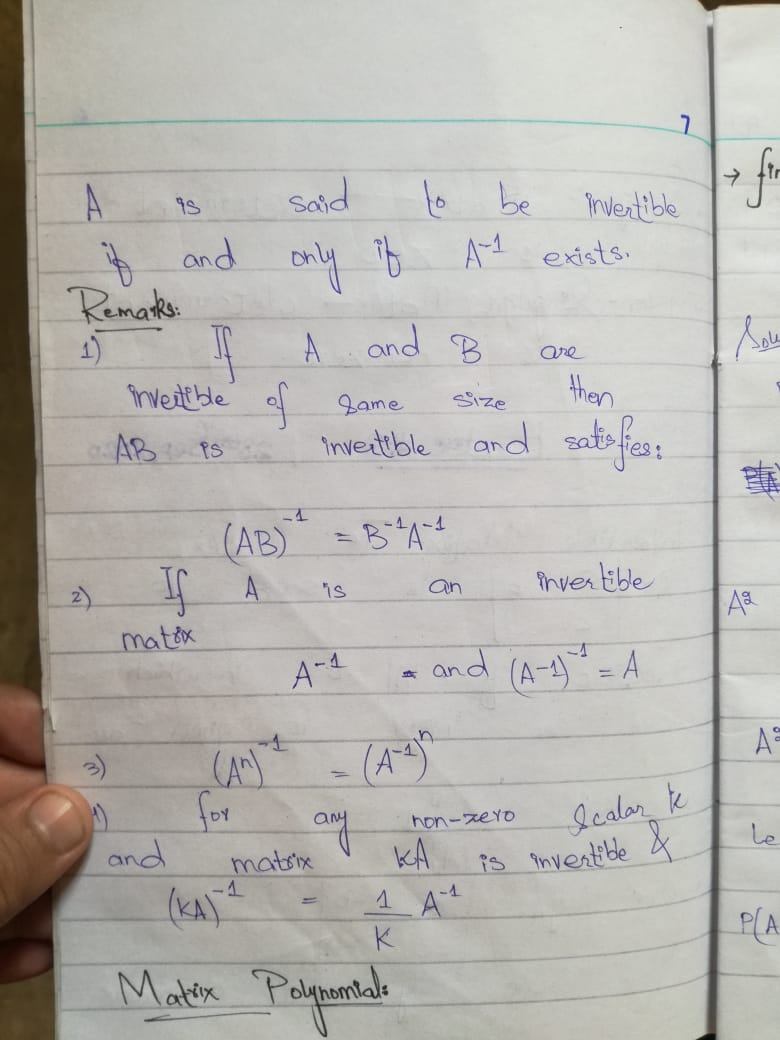 7
A is said to be invertible
if and only if A⁻¹ exists.
Remarks:
1) If A and B are
invertible of same size then
AB is invertible and satisfies:
(AB)⁻¹ = B⁻¹A⁻¹
2) If A is an invertible
matrix
A⁻¹ and (A-1)⁻¹ = A
3) (Aⁿ)⁻¹ = (A⁻¹)ⁿ
for any non-zero Scalar k
and matrix kA is invertible &
(KA)⁻¹ = 1/K A⁻¹
Matrix Polynomial:
→
A²
Le
P(A